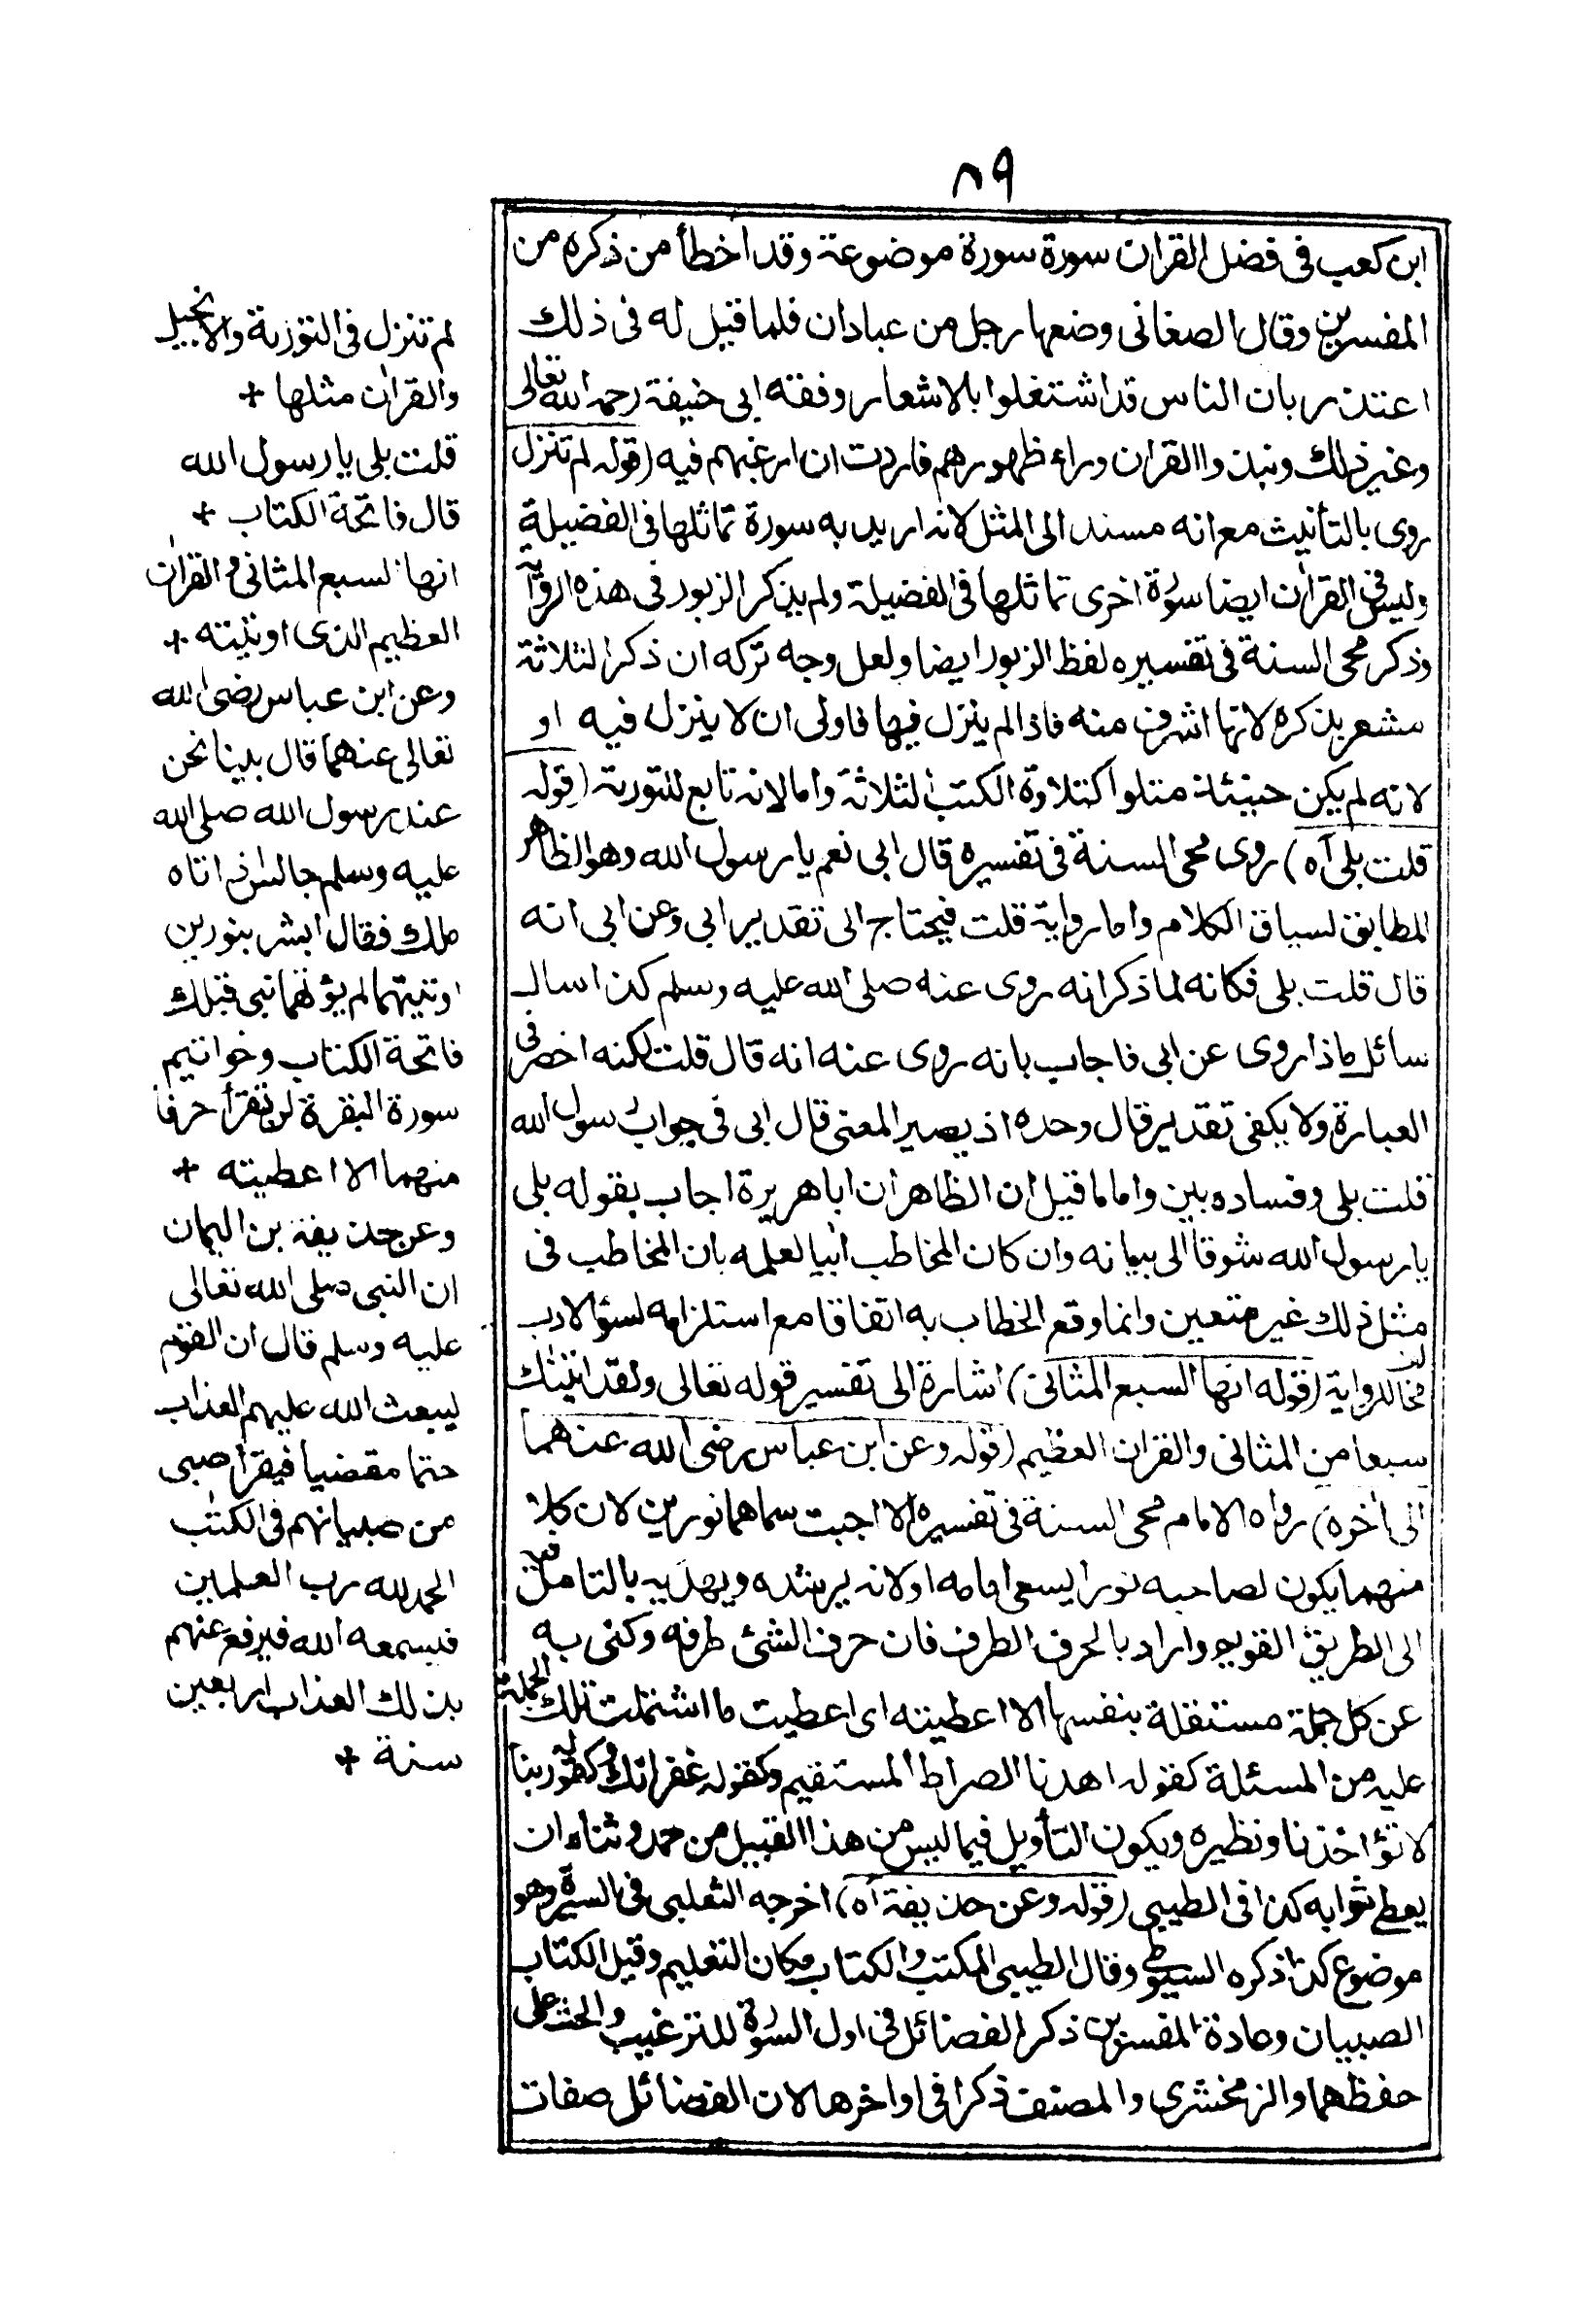 ٨٩
ابن كعب في فضل القران سورة سورة موضوعة وقد اخطأ من ذكره من
المفسرين وقال الصغاني وضعها رجل من عبادان فلما قيل له في ذلك
اعتذر بان الناس قد اشتغلوا بالاشعار وفقه ابي حنيفة رحمه الله تعالى
وغير ذلك ونبذوا القران وراء ظهورهم فاردت ان ارغبهم فيه (قوله لم تنزل
روى بالتأنيث مع انه مسند الى المثل لانه اريد به سورة تماثلها في الفضيلة
وليس في القران ايضا سورة اخرى تماثلها في الفضيلة ولم يذكر الزبور في هذه الرواية
وذكر محي السنة في تفسيره لفظ الزبور ايضا ولعل وجه تركه ان ذكر الثلاثة
مشعر بذكره لانها اشرف منه فاذا لم ينزل فيها فاولى ان لا ينزل فيه او
لانه لم يكن حينئذ متلوا كتلاوة الكتب الثلاثة واما لانه تابع للتورىة (قوله
قلت بلى آه) روى محي السنة في تفسيره قال ابي نعم يا رسول الله وهو الظاهر
المطابق لسياق الكلام واما رواية قلت فيحتاج الى تقدير ابي وعن ابي انه
قال قلت بلى فكانه لما ذكر انه روى عنه صلى الله عليه وسلم كذا سال
سائل ماذا روى عن ابي فاجاب بانه روى عنه انه قال قلت لكنه اخصر في
العبارة ولا يكفي تقدير قال وحده اذ يصير المعنى قال ابي في جواب رسول الله
قلت بلى وفساده بين واما ما قيل ان الظاهر ان ابا هريرة اجاب بقوله بلى
يا رسول الله شوقا الى بيانه وان كان المخاطب ابيا لعلمه بان المخاطب في
مثل ذلك غير متعين وانما وقع الخطاب به اتفاقا مع استلزامه لسؤ الادب
مخالف لرواية (قوله انها السبع المثاني) اشارة الى تفسير قوله تعالى ولقد اتينك
سبعا من المثاني والقران العظيم (قوله وعن ابن عباس رضى الله عنهما
الى اخره) رواه الامام محي السنة في تفسيره الا اجبت سماهما نورين لان كلا
منهما يكون لصاحبه نورا يسعى امامه او لانه يرشده ويهديه بالتامل فيه
الى الطريق القويم واراد بالحرف الطرف فان حرف الشئ طرفه وكنى به
عن كل جملة مستقلة بنفسها الا اعطيته اى اعطيت ما اشتملت تلك الجملة
عليه من المسئلة كقوله اهدنا الصراط المستقيم وكقوله غفرانك وكقوله ربنا
لا تؤاخذنا ونظيره ويكون التأويل فيما ليس من هذا القبيل من حمد وثناء ان
يعطى ثوابه كذا في الطيبي (قوله وعن حذيفة آه) اخرجه الثعلبي في السيرة وهو
موضوع كذا ذكره السيوطي وقال الطيبي المكتب والكتاب مكان التعليم وقيل الكتاب
الصبيان وعادة المفسرين ذكر الفضائل في اول السورة للترغيب والحث على
حفظهما والزمخشري والمصنف ذكرا في اواخرها لان الفضائل صفات
لم تنزل في التورىة والانجيل
والقران مثلها +
قلت بلى يا رسول الله
قال فاتحة الكتاب +
انها السبع المثاني والقران
العظيم الذى اوتيته +
وعن ابن عباس رضى الله
تعالى عنهما قال بينا نحن
عند رسول الله صلى الله
عليه وسلم جالس اذ اتاه
ملك فقال ابشر بنورين
اوتيتهما لم يؤتهما نبى قبلك
فاتحة الكتاب وخواتيم
سورة البقرة لن تقرأ حرفا
منهما الا اعطيته +
وعن حذيفة بن اليمان
ان النبي صلى الله تعالى
عليه وسلم قال ان القوم
ليبعث الله عليهم العذاب
حتما مقضيا فيقرأ صبى
من صبيانهم في الكتب
الحمد لله رب العلمين
فيسمعه الله فيرفع عنهم
بذلك العذاب اربعين
سنة +